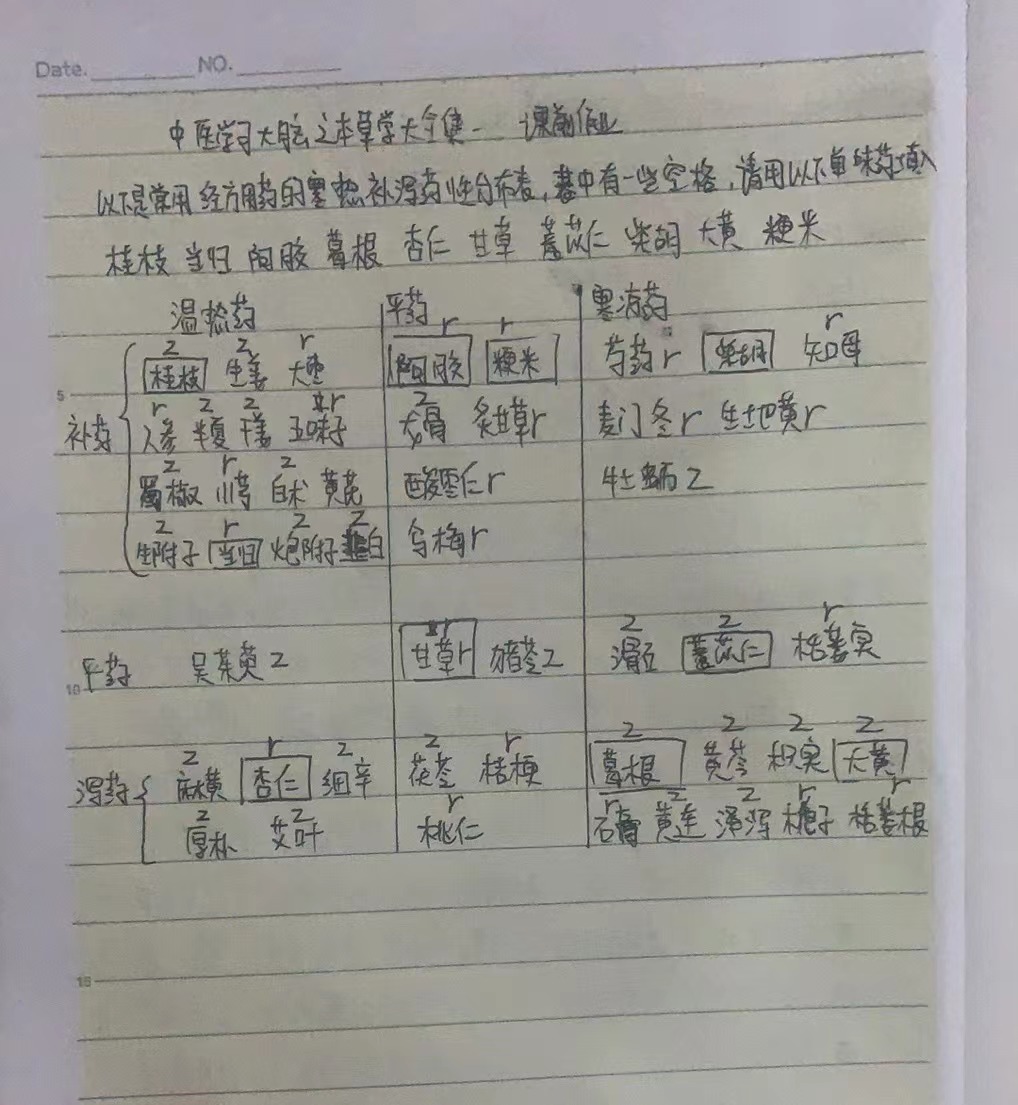 Date. NO.
中医学习大脑之本草学大全集 - 课前作业
以下是常用经方用药的寒热补泻药性分布表,表中有一些空格,请用以下单味药填入
桂枝 当归 阿胶 葛根 杏仁 甘草 薏苡仁 柴胡 大黄 粳米
温热药 平药 寒凉药
z z r r r r
桂枝 生姜 大枣 阿胶 粳米 芍药 r 柴胡 知母
5
r z z r z
补药 人参 半夏 干姜 五味子 龙骨 炙甘草r 麦门冬 r 生地黄r
z r z
蜀椒 川芎 白术 黄芪 酸枣仁r 牡蛎 z
z r z z
生附子 当归 炮附子 薤白 乌梅r
z z r
10 平药 吴茱萸 z 甘草r 猪苓z 滑石 薏苡仁 栝蒌实
z r z z r z z z z
泻药 麻黄 杏仁 细辛 茯苓 桔梗 葛根 黄芩 枳实 大黄
z z r r z z r r
厚朴 艾叶 桃仁 石膏 黄连 泽泻 栀子 栝蒌根
15